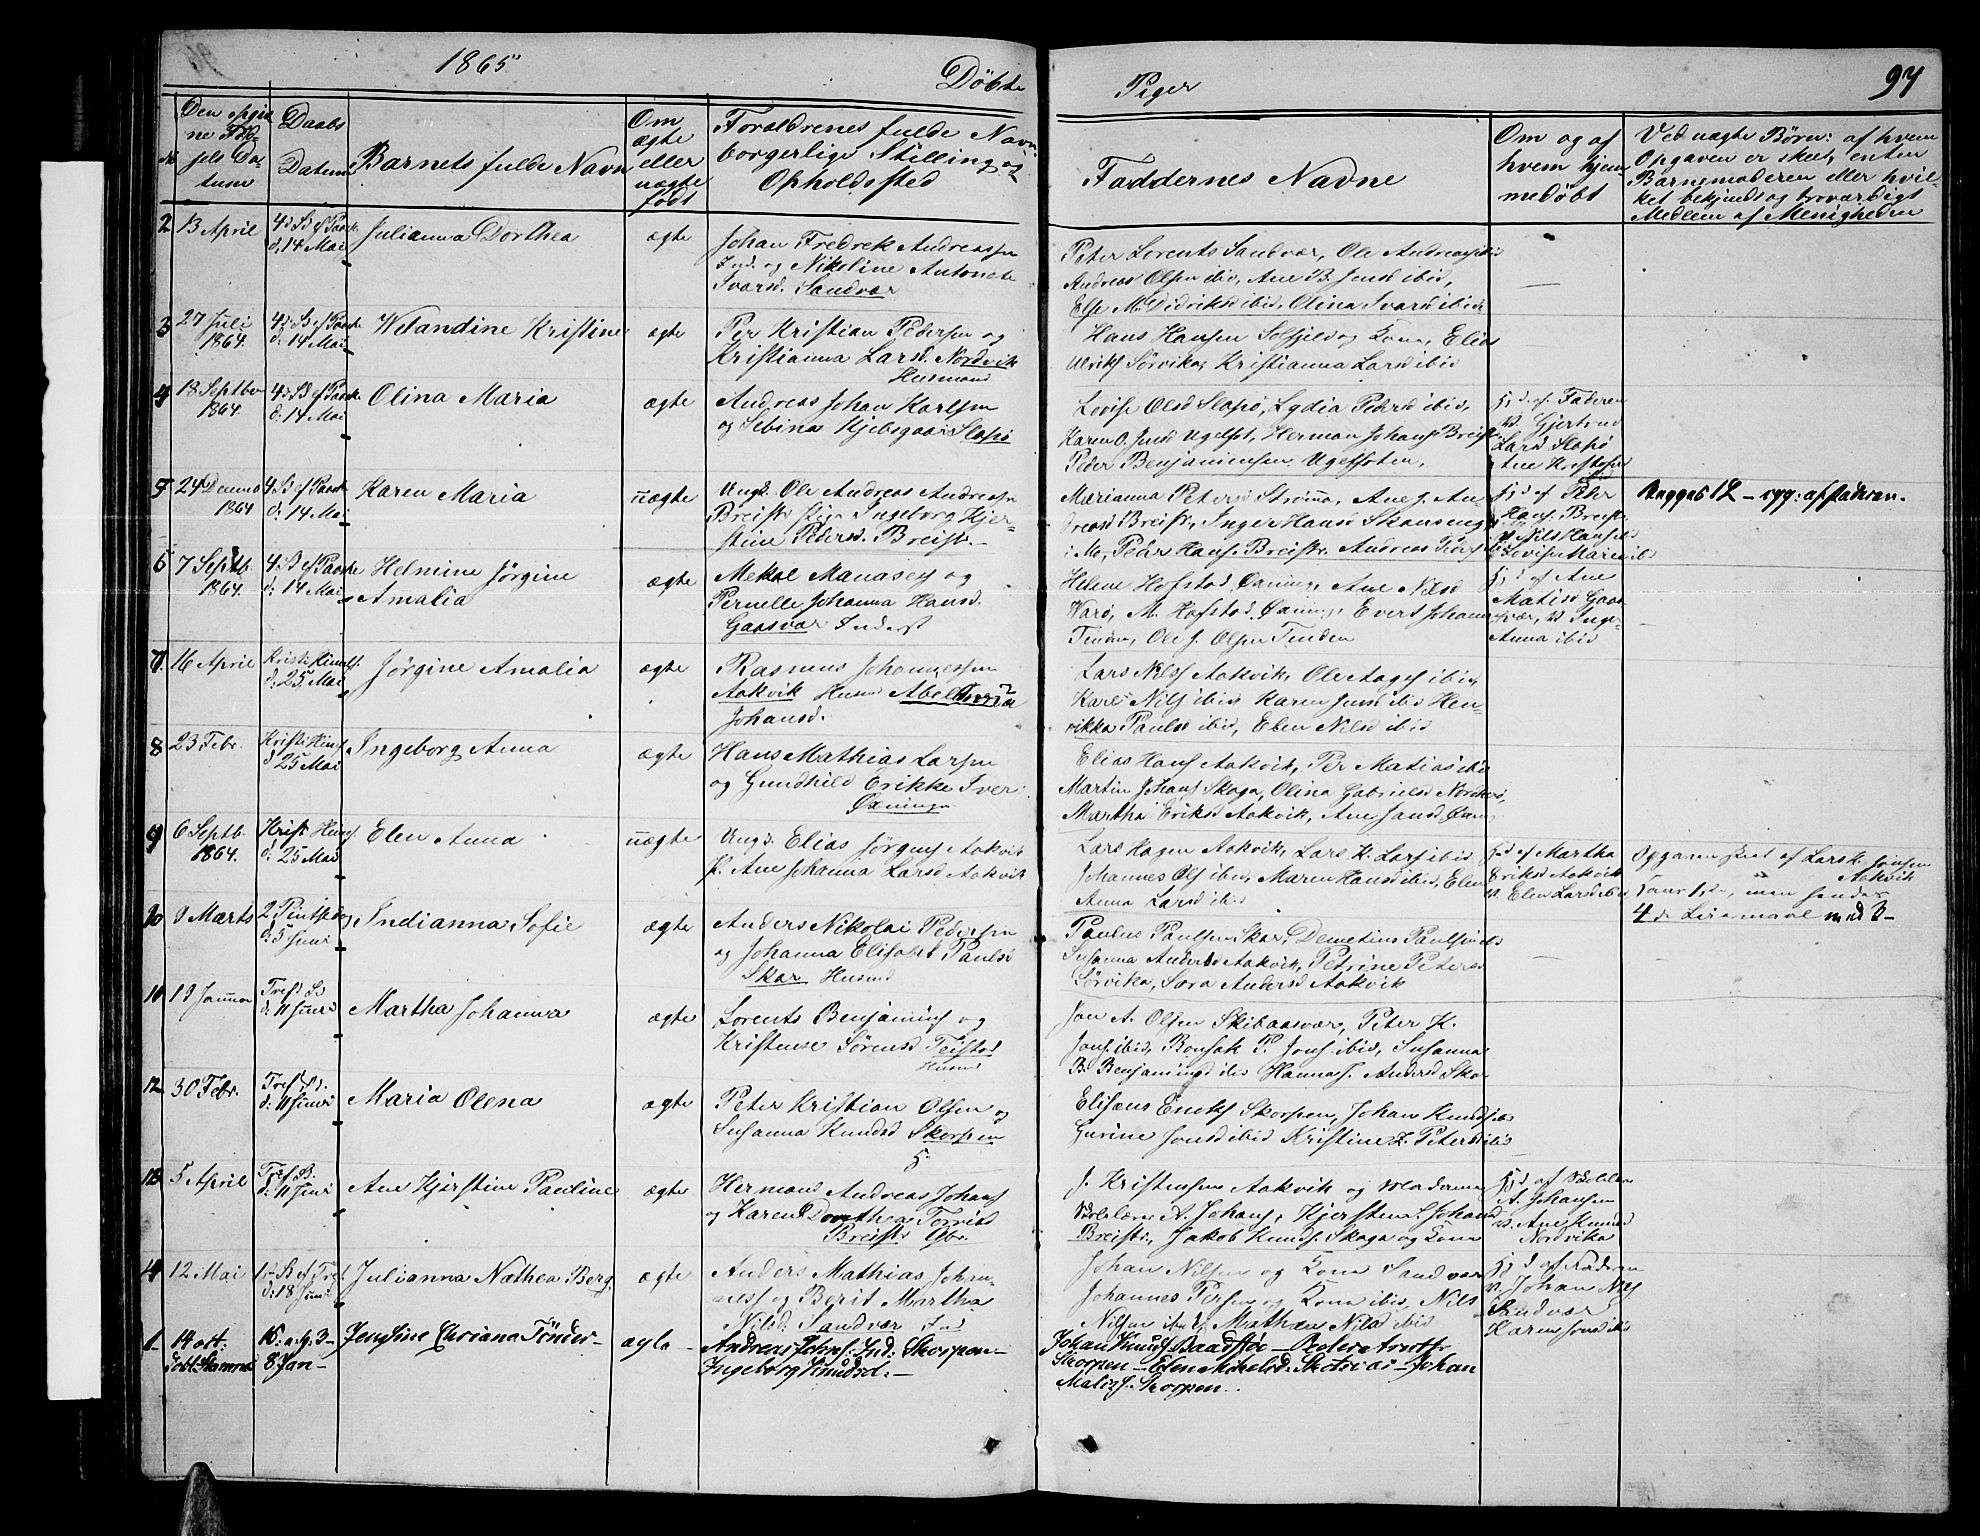 1865
Döbte
Piger
97
No
Den opgivne Fødsels Datum
Daabs Datum
Barnets fulde Navn
Om ægte eller uægte født
Forældrenes fulde Navn, borgerlige Stilling og Opholdssted
Faddernes Navne
Om og af hvem hjemmedøbt
Ved uægte Børn: af hvem Opgaven er skeet, enten Barnemoderen eller hvilket bekjendt og troværdigt Medlem af Menigheden
2 13 April 4 d. S. ef Paaske d. 14 Mai Julianna Dorthea ægte
Johan Fredrek Andreassen
Ind. og Nikoline Antonete
Ivarsd. Sandvær
Peter Lorents Sandvær, Ole Andreas ibid
Andreas Olsen ibid, Ane B. Jensd ibid,
Else M. Didriksd ibid, Olina Ivarsd ibid
3 27 Juli 1864. 4 d. S. ef Paaske d. 14 Mai Welandine Kristine ægte
Per Kristian Pedersen og
Kristianna Larsd. Nordvik
Husmand
Hans Hansen Solfjeld og Kona, Elias
Ulriks Sörvika, Kristianna Larsd ibid
4 18 Septber 1864. 4 d. S. ef Paaske d. 14 Mai Olina Maria ægte
Andreas Johan Karlsen
og Sebina Kjelsgaar Slapö
Lovise Olsd Slapö, Lydia Pedersd ibid,
Karen O. Jensd Ugelst, Herman Johans Breist
Peder Benjaminsen Ugelsoten,
Hjd. af Faderen
v. Gjertrud
Larsd Slapö
Ane Hofstad
5 24 Decemb 1864 4 S. ef Paaske d. 14 Mai Karen Maria uægte
Ungk. Ole Andreas Andreasen
Breistr Pige Ingeborg Kjerstine
Pedersd. Breistr.
Marianna Petersd Ströma, Ane J. Andreasd
Breistr, Inger Hansd Skonseng
i M, Peder Hans. Breistr, Andreas
Hjd af Pehr
Hans. Breistr
v. Nils Hansen
Lovise Maria ib
6 7 Septb. 1864. 4. S. ef Paaske d. 14 Mai Helmine Jörgine Amalia ægte
Mekal Manases og
Pernelle Johanna Hansd.
Gaasvær Inderst
Helene Hofstad Öxning, Ane Nilsd
Varö, M. Hofstad. Öxning, Evert Johan
Tinden, Ole J. Olsen Tinden
Hjd af Ane
Matisd Gaas
vær, v. Inge
Anna ibid
7 16 April Kristi Himelf. d. 25. Mai Jörgine Amalia ægte
Rasmus Johannessen
Aakvik Husmd Abel Maria
Johansd.
Lars Nils Aakvik, Ole Aages ibid,
Karl Nils ibid Karen Jensd ibid Henrikka
Paulsd ibid, Elen Nilsd ibid
8 23 Febr. Kristi Himf. d. 25 Mai Ingeborg Anna ægte
Hans Mathias Larsen
og Gundhild Erikke Iver
Öxninga
Elias Hans Aakvik, Per Matias ibid
Martin Johans Skaga, Olina Gabrielsd Nordvik,
Martha Eriksd Aakvik, Ane Jansd Öxn
9 6 Septb. 1864. Krist Himf. d. 25 Mai Elen Anna uægte
Ungk. Elias Jörgens Aakvik
P. Ane Johanna Larsd Aakvik
Lars Hagen Aakvik, Lars K. Lars ibid
Johannes Ols ibid, Maren Hansd ibid, Elen
Anna Larsd ibid
Hjd af Martha
Eriksd Aakvik
v. Elen Larsd ibid
Opgaven skeet af Lars K. Jonsen
Aakvik
10 9 Marts 2 Pintsedag d. 5 Juni Indianna Sofie ægte
Anders Nikolai Pedersen
og Johanna Elisabet Paulsd
Skar Husmd
Paulus Paulsen Skar, Demetius Paulsen ib
Susanna Andersd Aakvik, Petrine Peters
Sörvika, Sara Andersd Aakvik
4 de Leiermaal med 3 —
11 19 Januar Tref. S. d. 11 Juni Martha Johanna ægte
Lorents Benjamins og
Kristense Sörensd Teistad
Husmd
Jon A. Olsen Skibaasvær, Peter K.
Jons. ibid, Bonsak P. Jons ibid, Susanna
B. Benjaminsd ibid Hanna J. Andersd Skar
12 30 Febr. Tref S. d. 11 Juni Maria Olena ægte
Peter Kristian Olsen og
Susanna Knudsd Skorpen
5
Elisæus Enoks Skorpen, Johan Knuds ib
Gurine Jonsd ibid Kristine Z. Petersd ibid
13 5 April Tref S. d. 11 Juni Ane Kjerstine Pauline ægte
Hermand Andreas Johans
og Karen Dorthea Torrisd
Breistr Gbr.
J. Kristensen Aakvik og Moderen
A. Johans, Kjersten S. Johans
Breistr, Jakob Knuds. Skaga og Kona
Hjd af
A. Johansen
v. Ane Knudsd
Nordvika
14 12 Mai 1 S. ef Tref. d. 18 Juni Julianna Nathea Berg ægte
Anders Mathias Johannes
og Berit Martha
Nilsd. Sandvær Ind
Johan Nilsen og Kona Sandvær
Johannes Persen og Kona ibid, Nils
Nilsen ibid, Mathea Nilsd ibid
Hjd af Faderen
v. Johan Nils
Sandvær
Karen Jonsd ibid
1 14 oct. döbt Stamnes 15. a. 3 — 8 Jan — Jensine Chriana Tönder — ægte —
Andreas Johns: Ind: Skorpen —
Ingeborg Knudsd. —
Johan Knuds Baadstö — Peder Arnts
Skorpen — Elen Mikelsd. Skotvær — Johan
Malis. Skorpen —